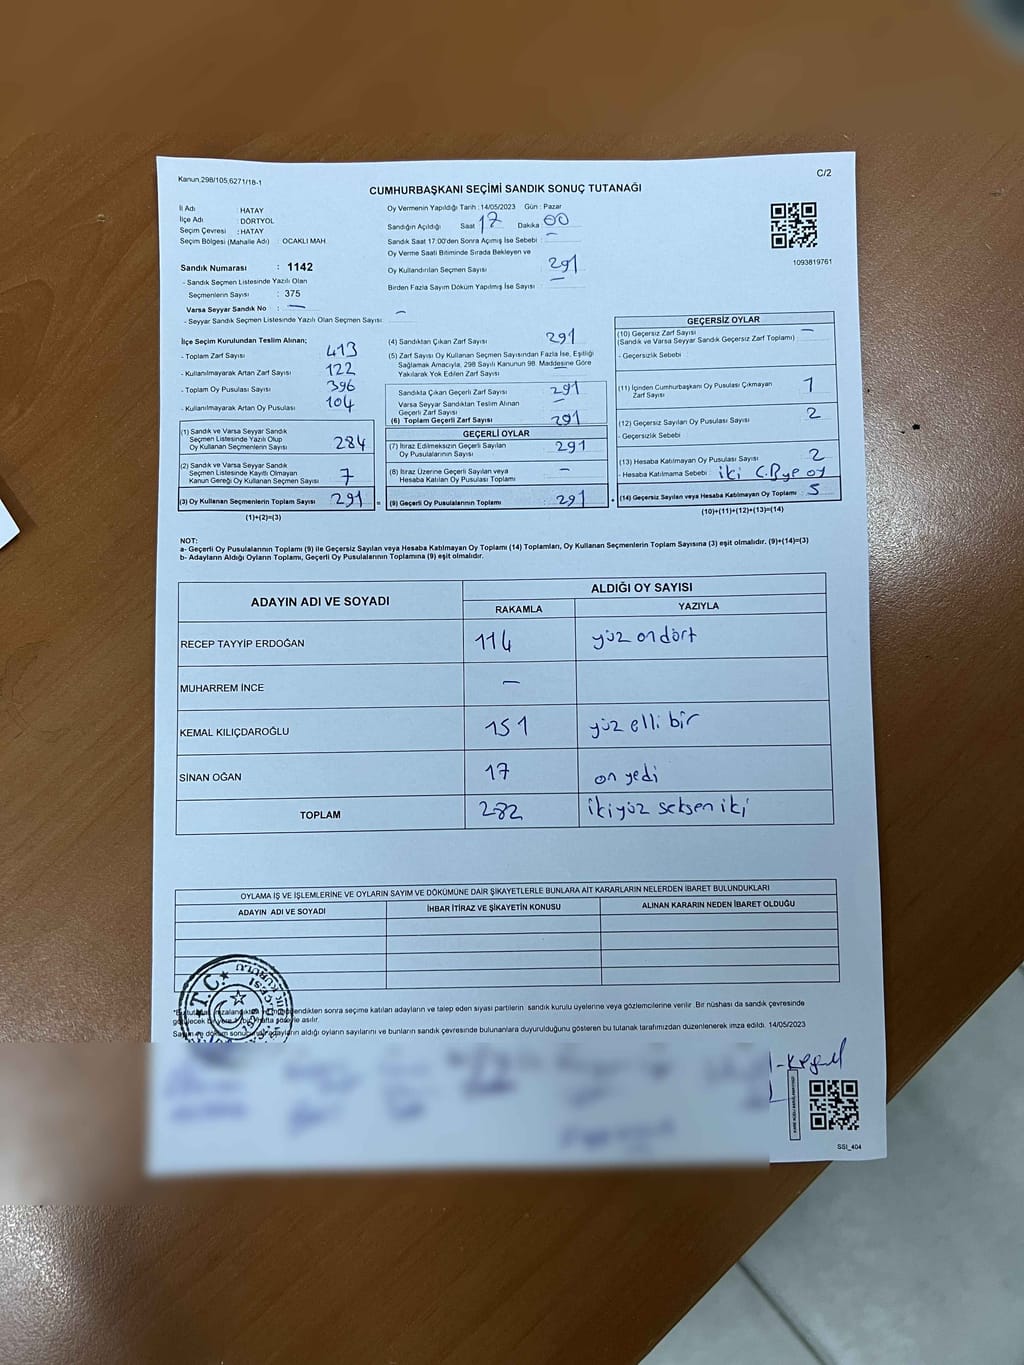 Kanun,298/105;6271/18-1
C/2
CUMHURBAŞKANI SEÇİMİ SANDIK SONUÇ TUTANAĞI
İl Adı : HATAY
İlçe Adı : DÖRTYOL
Seçim Çevresi : HATAY
Seçim Bölgesi (Mahalle Adı) OCAKLI MAH.
Sandık Numarası : 1142
- Sandık Seçmen Listesinde Yazılı Olan
Seçmenlerin Sayısı : 375
Varsa Seyyar Sandık No : —
- Seyyar Sandık Seçmen Listesinde Yazılı Olan Seçmen Sayısı : —
Oy Vermenin Yapıldığı Tarih : 14/05/2023 Gün : Pazar
Sandığın Açıldığı Saat 17 Dakika 00
Sandık Saat 17.00'den Sonra Açılmış İse Sebebi : —
Oy Verme Saati Bitiminde Sırada Bekleyen ve
Oy Kullandırılan Seçmen Sayısı : 291
Birden Fazla Sayım Döküm Yapılmış İse Sayısı : —
1093819761
İlçe Seçim Kurulundan Teslim Alınan;
- Toplam Zarf Sayısı : 413
- Kullanılmayarak Artan Zarf Sayısı : 122
- Toplam Oy Pusulası Sayısı : 396
- Kullanılmayarak Artan Oy Pusulası : 104
(1) Sandık ve Varsa Seyyar Sandık
Seçmen Listesinde Yazılı Olup
Oy Kullanan Seçmenlerin Sayısı : 284
(2) Sandık ve Varsa Seyyar Sandık
Seçmen Listesinde Kayıtlı Olmayan
Kanun Gereği Oy Kullanan Seçmen Sayısı : 7
(3) Oy Kullanan Seçmenlerin Toplam Sayısı : 291
(1)+(2)=(3)
(4) Sandıktan Çıkan Zarf Sayısı : 291
(5) Zarf Sayısı Oy Kullanan Seçmen Sayısından Fazla İse, Eşitliği
Sağlamak Amacıyla, 298 Sayılı Kanunun 98. Maddesine Göre
Yakılarak Yok Edilen Zarf Sayısı : —
Sandıkta Çıkan Geçerli Zarf Sayısı : 291
Varsa Seyyar Sandıktan Teslim Alınan
Geçerli Zarf Sayısı : —
(6) Toplam Geçerli Zarf Sayısı : 291
GEÇERLİ OYLAR
(7) İtiraz Edilmeksizin Geçerli Sayılan
Oy Pusulalarının Sayısı : 291
(8) İtiraz Üzerine Geçerli Sayılan veya
Hesaba Katılan Oy Pusulası Toplamı : —
= (9) Geçerli Oy Pusulalarının Toplamı : 291 +
GEÇERSİZ OYLAR
(10) Geçersiz Zarf Sayısı : —
(Sandık ve Varsa Seyyar Sandık Geçersiz Zarf Toplamı)
- Geçersizlik Sebebi :
(11) İçinden Cumhurbaşkanı Oy Pusulası Çıkmayan
Zarf Sayısı : 1
(12) Geçersiz Sayılan Oy Pusulası Sayısı : 2
- Geçersizlik Sebebi :
(13) Hesaba Katılmayan Oy Pusulası Sayısı : 2
- Hesaba Katılmama Sebebi : iki oy
(14) Geçersiz Sayılan veya Hesaba Katılmayan Oy Toplamı : 5
(10)+(11)+(12)+(13)=(14)
NOT:
a- Geçerli Oy Pusulalarının Toplamı (9) ile Geçersiz Sayılan veya Hesaba Katılmayan Oy Toplamı (14) Toplamları, Oy Kullanan Seçmenlerin Toplam Sayısına (3) eşit olmalıdır. (9)+(14)=(3)
b- Adayların Aldığı Oyların Toplamı, Geçerli Oy Pusulalarının Toplamına (9) eşit olmalıdır.
ADAYIN ADI VE SOYADI ALDIĞI OY SAYISI
RAKAMLA YAZIYLA
RECEP TAYYİP ERDOĞAN 114 yüz ondört
MUHARREM İNCE —
KEMAL KILIÇDAROĞLU 151 yüz elli bir
SİNAN OĞAN 17 on yedi
TOPLAM 282 ikiyüz seksen iki
OYLAMA İŞ VE İŞLEMLERİNE VE OYLARIN SAYIM VE DÖKÜMÜNE DAİR ŞİKAYETLERLE BUNLARA AİT KARARLARIN NELERDEN İBARET BULUNDUKLARI
ADAYIN ADI VE SOYADI İHBAR İTİRAZ VE ŞİKAYETİN KONUSU ALINAN KARARIN NEDEN İBARET OLDUĞU
T.C.
sonra seçime katılan adayların ve talep eden siyasi partilerin sandık kurulu üyelerine veya gözlemcilerine verilir .Bir nüshası da sandık çevresinde
asılır.
aldığı oyların sayılarını ve bunların sandık çevresinde bulunanlara duyurulduğunu gösteren bu tutanak tarafımızdan düzenlenerek imza edildi. 14/05/2023
SSI_404